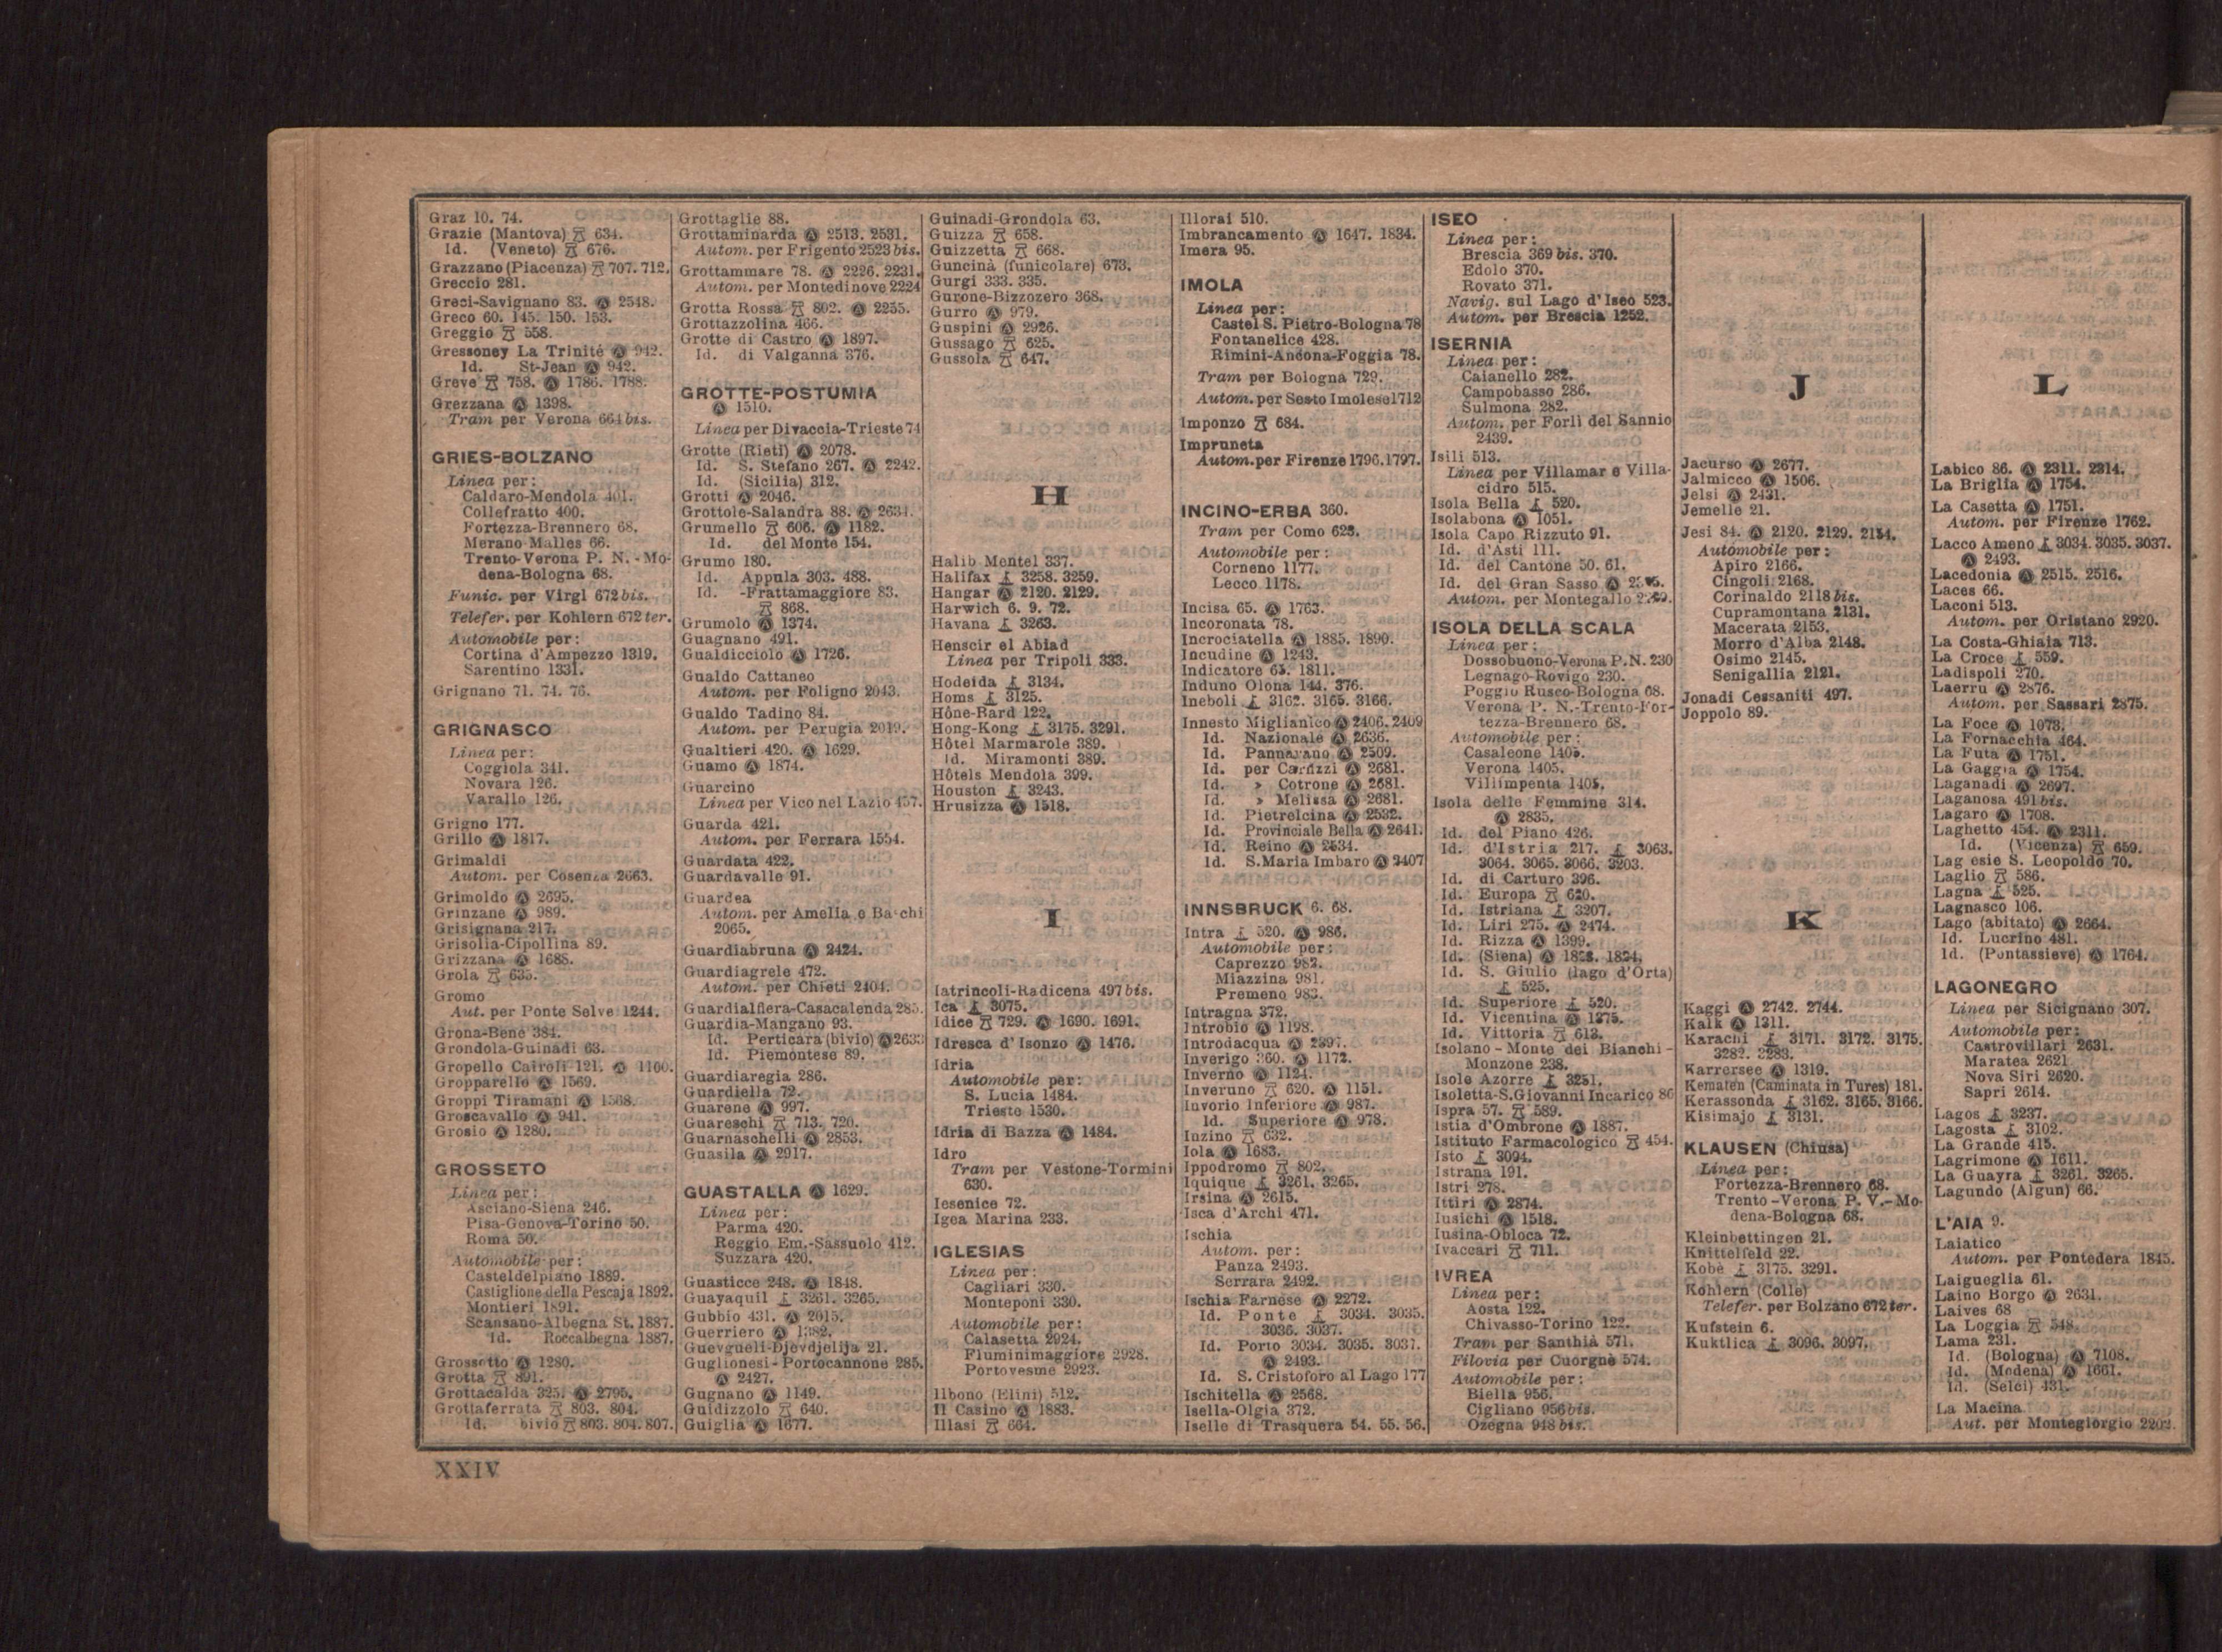 Graz 10. 74.
Grazie (Mantova) 634.
Id. (Veneto) 676.
Grazzano (Piacenza) 707. 712.
Greccio 281.
Greci-Savignano 83. Ⓐ 2548.
Greco 60. 145. 150. 153.
Greggio 558.
Gressoney La Trinité Ⓐ 942.
Id. St-Jean Ⓐ 942.
Greve 758. Ⓐ 1786. 1788.
Grezzana Ⓐ 1398.
Tram per Verona 664 bis.
GRIES-BOLZANO
Linea per:
Caldaro-Mendola 401.
Collefratto 400.
Fortezza-Brennero 68.
Merano-Malles 66.
Trento-Verona P. N. - Mo-
dena-Bologna 68.
Funic. per Virgl 672 bis.
Telefer. per Kohlern 672 ter.
Automobile per:
Cortina d'Ampezzo 1319.
Sarentino 1331.
Grignano 71. 74. 76.
GRIGNASCO
Linea per:
Coggiola 341.
Novara 126.
Varallo 126.
Grigno 177.
Grillo Ⓐ 1817.
Grimaldi
Autom. per Cosenza 2663.
Grimoldo Ⓐ 2695.
Grinzane Ⓐ 989.
Grisignana 217.
Grisolia-Cipollina 89.
Grizzana Ⓐ 1688.
Grola 635.
Gromo
Aut. per Ponte Selve 1244.
Grona-Bene 384.
Grondola-Guinadi 63.
Gropello Cairoli 121. Ⓐ 1100.
Gropparello Ⓐ 1569.
Groppi Tiramani Ⓐ 1568.
Groscavallo Ⓐ 941.
Grosio Ⓐ 1280.
GROSSETO
Linea per:
Asciano-Siena 246.
Pisa-Genova-Torino 50.
Roma 50.
Automobile per:
Casteldelpiano 1889.
Castiglione della Pescaja 1892.
Montieri 1891.
Scansano-Albegna St. 1887.
Id. Roccalbegna 1887.
Grossotto Ⓐ 1280.
Grotta 891.
Grottacalda 325. Ⓐ 2795.
Grottaferrata 803. 804.
Id. bivio 803. 804. 807.
Grottaglie 88.
Grottaminarda Ⓐ 2513. 2531.
Autom. per Frigento 2523 bis.
Grottammare 78. Ⓐ 2226. 2231.
Autom. per Montedinove 2224
Grotta Rossa 802. Ⓐ 2255.
Grottazzolina 466.
Grotte di Castro Ⓐ 1897.
Id. di Valganna 376.
GROTTE-POSTUMIA
Ⓐ 1510.
Linea per Divaccia-Trieste 74
Grotte (Rieti) Ⓐ 2078.
Id. S. Stefano 267. Ⓐ 2242.
Id. (Sicilia) 312.
Grotti Ⓐ 2046.
Grottole-Salandra 88. Ⓐ 2634.
Grumello 606. Ⓐ 1182.
Id. del Monte 154.
Grumo 180.
Id. Appula 303. 488.
Id. -Frattamaggiore 83.
868.
Grumolo Ⓐ 1374.
Guagnano 491.
Gualdicciolo Ⓐ 1726.
Gualdo Cattaneo
Autom. per Foligno 2043.
Gualdo Tadino 84.
Autom. per Perugia 2019.
Gualtieri 420. Ⓐ 1629.
Guamo Ⓐ 1874.
Guarcino
Linea per Vico nel Lazio 457.
Guarda 421.
Autom. per Ferrara 1554.
Guardata 422.
Guardavalle 91.
Guardea
Autom. per Amelia e
2065.
Guardiabruna Ⓐ 2424.
Guardiagrele 472.
Autom. per Chieti 2404.
Guardialfiera-Casacalenda 285.
Guardia-Mangano 93.
Id. Perticara (bivio) Ⓐ 2633
Id. Piemontese 89.
Guardiaregia 286.
Guardiella 72.
Guarene Ⓐ 997.
Guareschi 713. 720.
Guarnaschelli Ⓐ 2853.
Guasila Ⓐ 2917.
GUASTALLA Ⓐ 1629.
Linea per:
Parma 420.
Reggio Em.-Sassuolo 412.
Suzzara 420.
Guasticce 248. Ⓐ 1848.
Guayaquil 3261. 3265.
Gubbio 431. Ⓐ 2015.
Guerriero Ⓐ 1382.
Guevgueli-Djevdjelija 21.
Guglionesi - Portocannone 285.
Ⓐ 2427.
Gugnano Ⓐ 1149.
Guidizzolo 640.
Guiglia Ⓐ 1677.
Guinadi-Grondola 63.
Guizza 658.
Guizzetta 668.
Guncinà (funicolare) 673.
Gurgi 333. 335.
Gurone-Bizzozero 368.
Gurro Ⓐ 979.
Guspini Ⓐ 2926.
Gussago 625.
Gussola 647.
H
Halib Mentel 337.
Halifax 3258. 3259.
Hangar Ⓐ 2120. 2129.
Harwich 6. 9. 72.
Havana 3263.
Henscir el Abiad
Linea per Tripoli 333.
Hodeida 3134.
Homs 3125.
Hône-Bard 122.
Hong-Kong 3175. 3291.
Hôtel Marmarole 389.
Id. Miramonti 389.
Hôtels Mendola 399.
Houston 3243.
Hrusizza Ⓐ 1518.
I
Iatrincoli-Radicena 497 bis.
Ica 3075.
Idice 729. Ⓐ 1690. 1691.
Idresca d'Isonzo Ⓐ 1476.
Idria
Automobile per:
S. Lucia 1484.
Trieste 1530.
Idria di Bazza Ⓐ 1484.
Idro
Tram per Vestone-Tormini
630.
Iesenice 72.
Igea Marina 233.
IGLESIAS
Linea per:
Cagliari 330.
Monteponi 330.
Automobile per:
Calasetta 2924.
Fluminimaggiore 2928.
Portovesme 2923.
Ilbono (Elini) 512.
Il Casino Ⓐ 1883.
Illasi 664.
Illorai 510.
Imbrancamento Ⓐ 1647. 1834.
Imera 95.
IMOLA
Linea per:
Castel S. Pietro-Bologna 78
Fontanelice 428.
Rimini-Ancona-Foggia 78.
Tram per Bologna 729.
Autom. per Sesto Imolese 1712
Imponzo 684.
Impruneta
Autom. per Firenze 1796. 1797.
INCINO-ERBA 360.
Tram per Como 623.
Automobile per:
Corneno 1177.
Lecco 1178.
Incisa 65. Ⓐ 1763.
Incoronata 78.
Incrociatella Ⓐ 1885. 1890.
Incudine Ⓐ 1243.
Indicatore 65. 1811.
Induno Olona 144. 376.
Ineboli 3162. 3165. 3166.
Innesto Miglianico Ⓐ 2406. 2409
Id. Nazionale Ⓐ 2636.
Id. Pannarano Ⓐ 2509.
Id. per Ⓐ 2681.
Id. » Cotrone Ⓐ 2681.
Id. » Melissa Ⓐ 2681.
Id. Pietrelcina Ⓐ 2532.
Id. Provinciale Bella Ⓐ 2641.
Id. Reino Ⓐ 2534.
Id. S. Maria Imbaro Ⓐ 2407
INNSBRUCK 6. 68.
Intra 520. Ⓐ 986.
Automobile per:
Caprezzo 982.
Miazzina 981.
Premeno 983.
Intragna 372.
Introbio Ⓐ 1198.
Introdacqua Ⓐ 2397.
Inverigo 360. Ⓐ 1172.
Inverno Ⓐ 1124.
Inveruno 620. Ⓐ 1151.
Invorio Inferiore Ⓐ 987.
Id. Superiore Ⓐ 978.
Inzino 632.
Iola Ⓐ 1683.
Ippodromo 802.
Iquique 3261. 3265.
Irsina Ⓐ 2615.
Isca d'Archi 471.
Ischia
Autom. per:
Panza 2493.
Serrara 2492.
Ischia Farnese Ⓐ 2272.
Id. Ponte 3034. 3035.
3036. 3037.
Id. Porto 3034. 3035. 3037.
Ⓐ 2493.
Id. S. Cristoforo al Lago 177
Ischitella Ⓐ 2568.
Isella-Olgia 372.
Iselle di Trasquera 54. 55. 56.
ISEO
Linea per:
Brescia 369 bis. 370.
Edolo 370.
Rovato 371.
Navig. sul Lago d'Iseo 523.
Autom. per Brescia 1252.
ISERNIA
Linea per:
Caianello 282.
Campobasso 286.
Sulmona 282.
Autom. per Forlì del Sannio
2439.
Isili 513.
Linea per Villamar e Villa-
cidro 515.
Isola Bella 520.
Isolabona Ⓐ 1051.
Isola Capo Rizzuto 91.
Id. d'Asti 111.
Id. del Cantone 50. 61.
Id. del Gran Sasso Ⓐ
Autom. per Montegallo
ISOLA DELLA SCALA
Linea per:
Dossobuono-Verona P.N. 230
Legnago-Rovigo 230.
Poggio Rusco-Bologna 68.
Verona P. N.-Trento-For-
tezza-Brennero 68.
Automobile per:
Casaleone 1405.
Verona 1405.
Villimpenta 1405.
Isola delle Femmine 314.
Ⓐ 2835.
Id. del Piano 426.
Id. d'Istria 217. 3063.
3064. 3065. 3066. 3203.
Id. di Carturo 396.
Id. Europa 620.
Id. Istriana 3207.
Id. Liri 275. Ⓐ 2474.
Id. Rizza Ⓐ 1399.
Id. (Siena) Ⓐ 1824.
Id. S. Giulio (lago d'Orta)
525.
Id. Superiore 520.
Id. Vicentina Ⓐ 1375.
Id. Vittoria 613.
Isolano - Monte dei Bianchi -
Monzone 238.
Isole Azorre 3251.
Isoletta-S.Giovanni Incarico 86
Ispra 57. 589.
Istia d'Ombrone Ⓐ 1887.
Istituto Farmacologico 454.
Isto 3094.
Istrana 191.
Istri 278.
Ittiri Ⓐ 2874.
Iusichi Ⓐ 1518.
Iusina-Obloca 72.
Ivaccari 711.
IVREA
Linea per:
Aosta 122.
Chivasso-Torino 122.
Tram per Santhià 571.
Filovia per Cuorgnè 574.
Automobile per:
Biella 956.
Cigliano 956 bis.
Ozegna 948 bis.
J
Jacurso Ⓐ 2677.
Jalmicco Ⓐ 1506.
Jelsi Ⓐ 2431.
Jemelle 21.
Jesi 84. Ⓐ 2120. 2129. 2154.
Automobile per:
Apiro 2166.
Cingoli 2168.
Corinaldo 2118 bis.
Cupramontana 2131.
Macerata 2153.
Morro d'Alba 2148.
Osimo 2145.
Senigallia 2121.
Jonadi Cessaniti 497.
Joppolo 89.
K
Kaggi Ⓐ 2742. 2744.
Kalk Ⓐ 1311.
Karachi 3171. 3172. 3175.
3282. 3283.
Karrersee Ⓐ 1319.
Kematen (Caminata in Tures) 181.
Kerassonda 3162. 3165. 3166.
Kisimajo 3131.
KLAUSEN (Chiusa)
Linea per:
Fortezza-Brennero 68.
Trento-Verona P. V.-Mo-
dena-Bologna 68.
Kleinbettingen 21.
Knittelfeld 22.
Kobè 3175. 3291.
Kohlern (Colle)
Telefer. per Bolzano 672 ter.
Kufstein 6.
Kuktlica 3096. 3097.
L
Labico 86. Ⓐ 2311. 2314.
La Briglia Ⓐ 1754.
La Casetta Ⓐ 1751.
Autom. per Firenze 1762.
Lacco Ameno 3034. 3035. 3037.
Ⓐ 2493.
Lacedonia Ⓐ 2515. 2516.
Laces 66.
Laconi 513.
Autom. per Oristano 2920.
La Costa-Ghiaia 713.
La Croce 559.
Ladispoli 270.
Laerru Ⓐ 2876.
Autom. per Sassari 2875.
La Foce Ⓐ 1073.
La Fornacchia 464.
La Futa Ⓐ 1751.
La Gaggia Ⓐ 1754.
Laganadi Ⓐ 2697.
Laganosa 491 bis.
Lagaro Ⓐ 1708.
Laghetto 454. Ⓐ 2311.
Id. (Vicenza) 659.
Lag esie S. Leopoldo 70.
Laglio 586.
Lagna 525.
Lagnasco 106.
Lago (abitato) Ⓐ 2664.
Id. Lucrino 481.
Id. (Pontassieve) Ⓐ 1764.
LAGONEGRO
Linea per Sicignano 307.
Automobile per:
Castrovillari 2631.
Maratea 2621
Nova Siri 2620.
Sapri 2614.
Lagos 3237.
Lagosta 3102.
La Grande 415.
Lagrimone Ⓐ 1611.
La Guayra 3261. 3265.
Lagundo (Algun) 66.
L'AIA 9.
Laiatico
Autom. per Pontedera 1845.
Laigueglia 61.
Laino Borgo Ⓐ 2631.
Laives 68
La Loggia 548.
Lama 231.
Id. (Bologna) Ⓐ 7108.
Id. (Modena) Ⓐ 1661.
Id. (Selci) 431.
La Macina
Aut. per Montegiorgio 2202.
XXIV